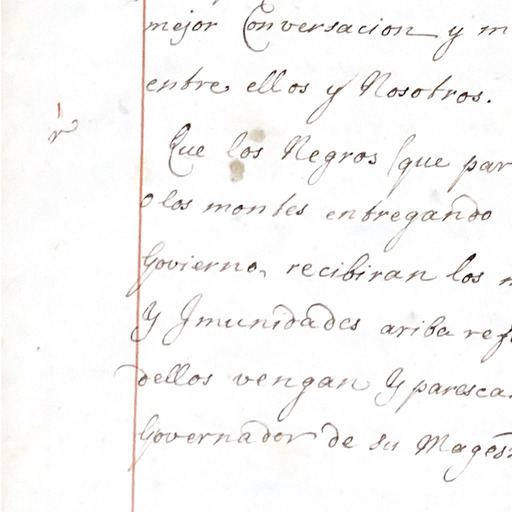 mejor Conversacion y m
entre ellos y Nosotros.
Que los Negros (que par
o los montes entregando
Govierno, recibiran los
Y Jmunidades ariba ref
dellos vengan Y paresca
Governador de su Magest